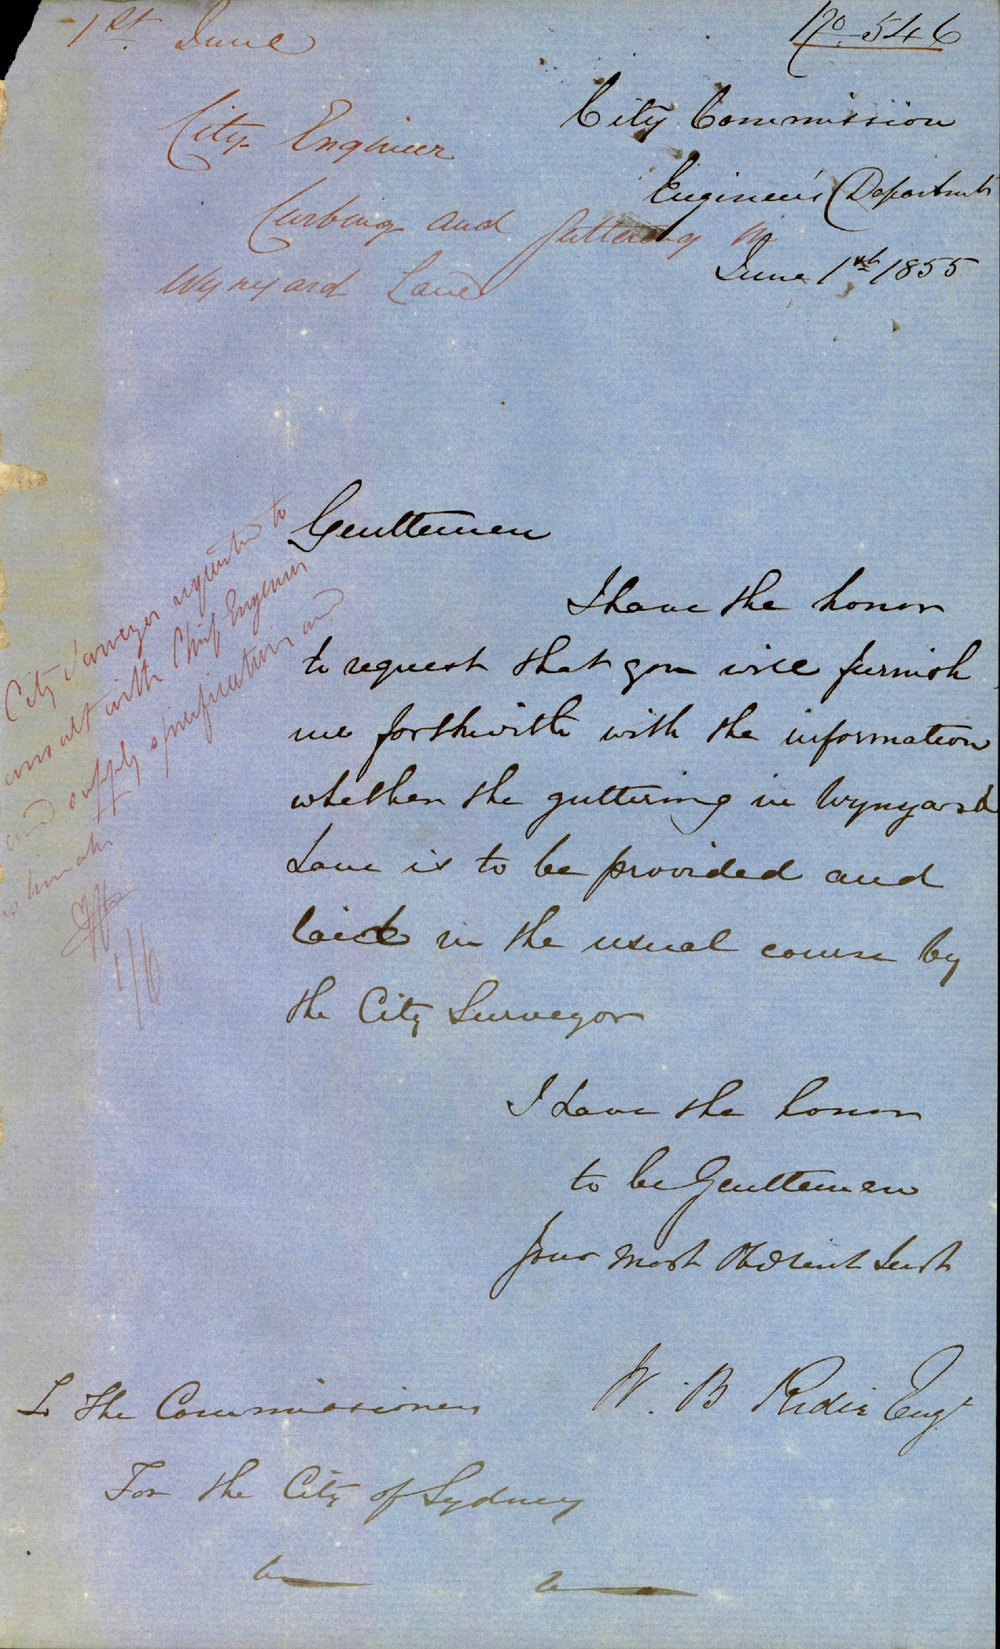 1st June
No. 546
City Engineer
Curbing and guttering in
Wynyard Lane
City Commission
Engineer's Departmt
June 1st 1855
Gentlemen
I have the honor
to request that you will furnish
me forthwith with the information
whether the guttering in Wynyard
Lane is to be provided and
laid in the usual course by
the City Surveyor
I have the honor
to be Gentlemen
Your most Obedient Servt
W. B. Rider Engr
To The Commissioners
For the City of Sydney
City Surveyor requested to
consult with Chief Engineer
and supply specification and
estimate
1/6